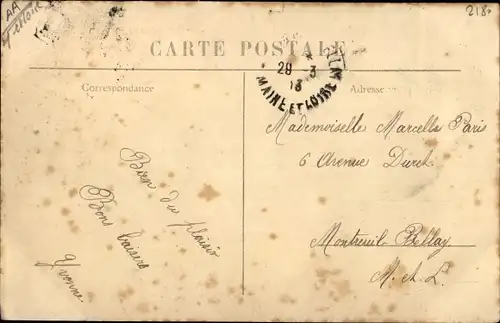 AA
218
CARTE POSTALE
29 - 3
13
MAINE ET LOIRE
Correspondance
Adresse
Bien du plaisir
Bons baisers
Yvonne
Mademoiselle Marcelle Paris
6 Avenue
Montreuil-Bellay
M. et L.